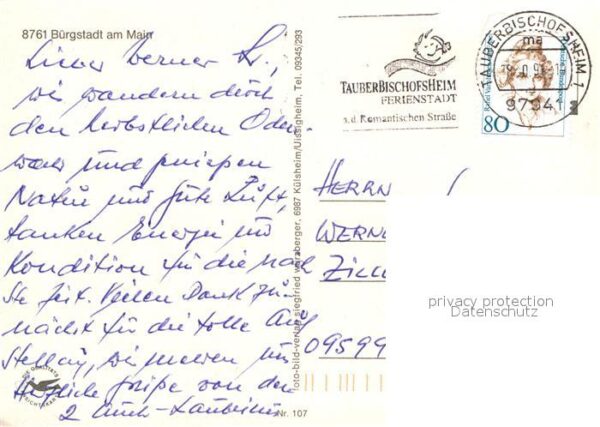 8761 Bürgstadt am Main
Lieber Werner
wir wandern durch
den herbstlichen Oden-
wald und genießen
Natur und gute Luft,
tanken Energie und
Kondition für die näch
ste Zeit. Vielen Dank zu-
nächst für die tolle Auf
stellung, wir
Herzliche Grüße von den
2
foto-bild-verlag siegfried 6987 Külsheim/Uissigheim, Tel. 09345/293
Nr. 107
TAUBERBISCHOFSHEIM
FERIENSTADT
a.d. Romantischen Straße
TAUBERBISCHOFSHEIM 1
ma
97941
80
HERRN
WERN
ZILL
09599
privacy protection
Datenschutz